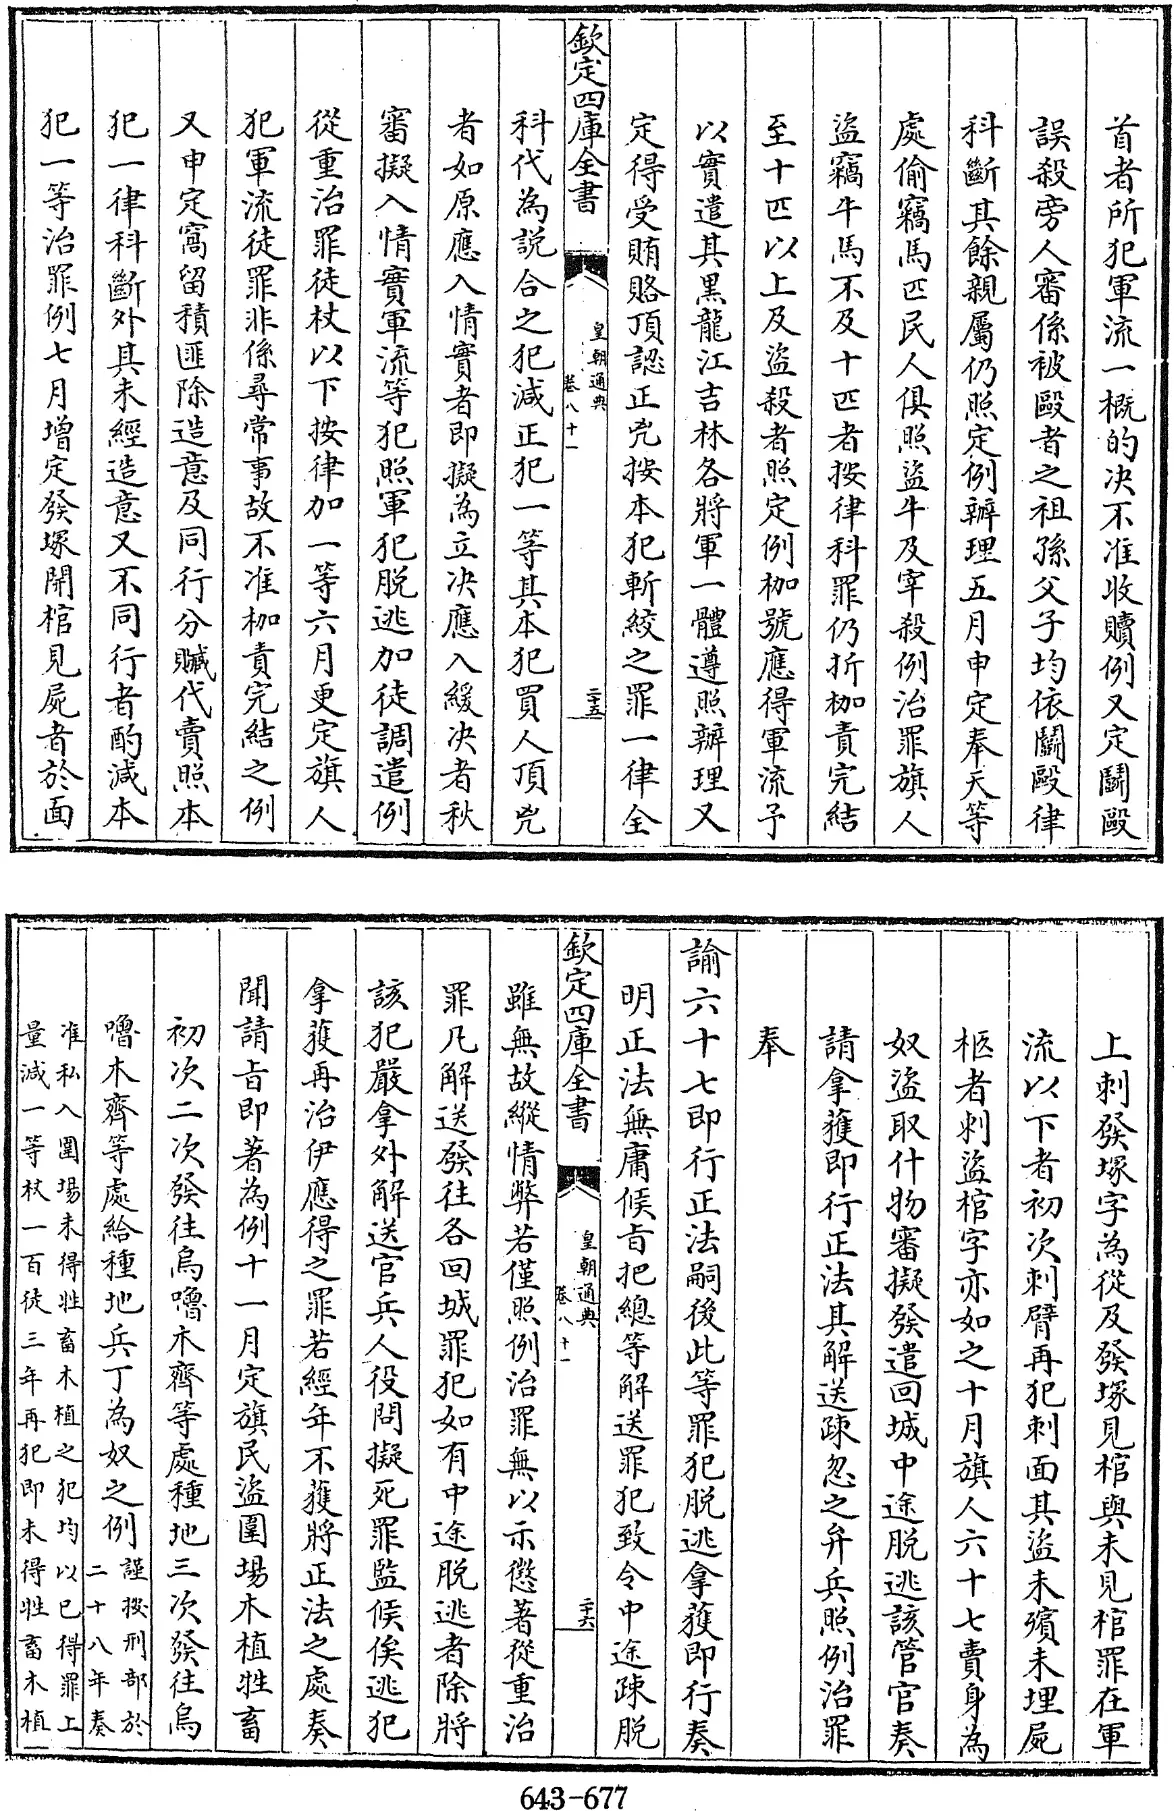 首者所犯軍流一概的决不准收贖例又定鬭毆
誤殺旁人審係被毆者之祖孫父子均依鬭毆律
科斷其餘親屬仍照定例辦理五月申定奉天等
處偷竊馬匹民人俱照盜牛及宰殺例治罪旗人
盜竊牛馬不及十匹者按律科罪仍折枷責完結
至十匹以上及盜殺者照定例枷號應得軍流予
以實遣其黑龍江吉林各將軍一體遵照辦理又
定得受賄賂頂認正兇按本犯斬絞之罪一律全
欽定四庫全書
皇朝通典
卷八十一
二十五
科代為説合之犯減正犯一等其本犯買人頂兇
者如原應入情實者即擬為立决應入緩决者秋
審擬入情實軍流等犯照軍犯脱逃加徒調遣例
從重治罪徒杖以下按律加一等六月更定旗人
犯軍流徒罪非係尋常事故不准枷責完結之例
又申定窩留積匪除造意及同行分贓代賣照本
犯一律科斷外其未經造意又不同行者酌減本
犯一等治罪例七月增定發塚開棺見屍者於面
上刺發塚字為從及發塚見棺與未見棺罪在軍
流以下者初次刺臂再犯刺面其盜未殯未埋屍
柩者刺盜棺字亦如之十月旗人六十七賣身為
奴盜取什物審擬發遣回城中途脱逃該管官奏
請拿獲即行正法其解送疎忽之弁兵照例治罪
奉
諭六十七即行正法嗣後此等罪犯脱逃拿獲即行奏
明正法無庸候旨把總等解送罪犯致令中途疎脱
欽定四庫全書
皇朝通典
卷八十一
二十六
雖無故縱情弊若僅照例治罪無以示懲著從重治
罪凡解送發往各回城罪犯如有中途脱逃者除將
該犯嚴拿外解送官兵人役問擬死罪監候俟逃犯
拿獲再治伊應得之罪若經年不獲將正法之處奏
聞請旨即著為例十一月定旗民盜圍場木植牲畜
初次二次發往烏嚕木齊等處種地三次發往烏
嚕木齊等處給種地兵丁為奴之例
謹按刑部於
二十八年奏
准私入圍場未得牲畜木植之犯均以已得罪上
量減一等杖一百徒三年再犯即未得牲畜木植
643-677